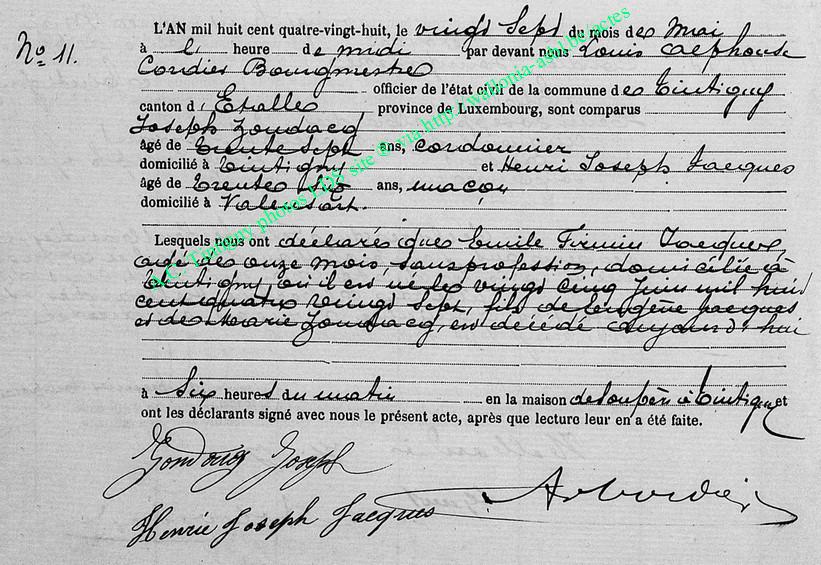 No 11.
L'AN mil huit cent quatre-vingt-huit, le vingt Sept du mois de Mai
à l' heure de midi par devant nous Louis Alphonse
Cordier Bourgmestre
officier de l'état civil de la commune de Tintigny
canton d' Etalle province de Luxembourg, sont comparus
Joseph
âgé de trente Sept ans, cordonnier
domicilié à Tintigny et Henri Joseph Jacques
âgé de trente ans, maçon
domicilié à Valensart.
Lesquels nous ont déclaré que Emile Firmin Jacques,
agé de onze mois, sans profession, domicilié à
Tintigny, où il est né le vingt cinq Juin mil huit
cent quatre vingt Sept, fils de Eugène Jacques
et de Marie est décédé aujourd'hui
à Six heures du matin en la maison de son père à Tintigny et
ont les déclarants signé avec nous le présent acte, après que lecture leur en a été faite.
Joseph
Henri Joseph Jacques
A.C. Tintigny photos LDS site © via http://wallonia-asbl.be/actes